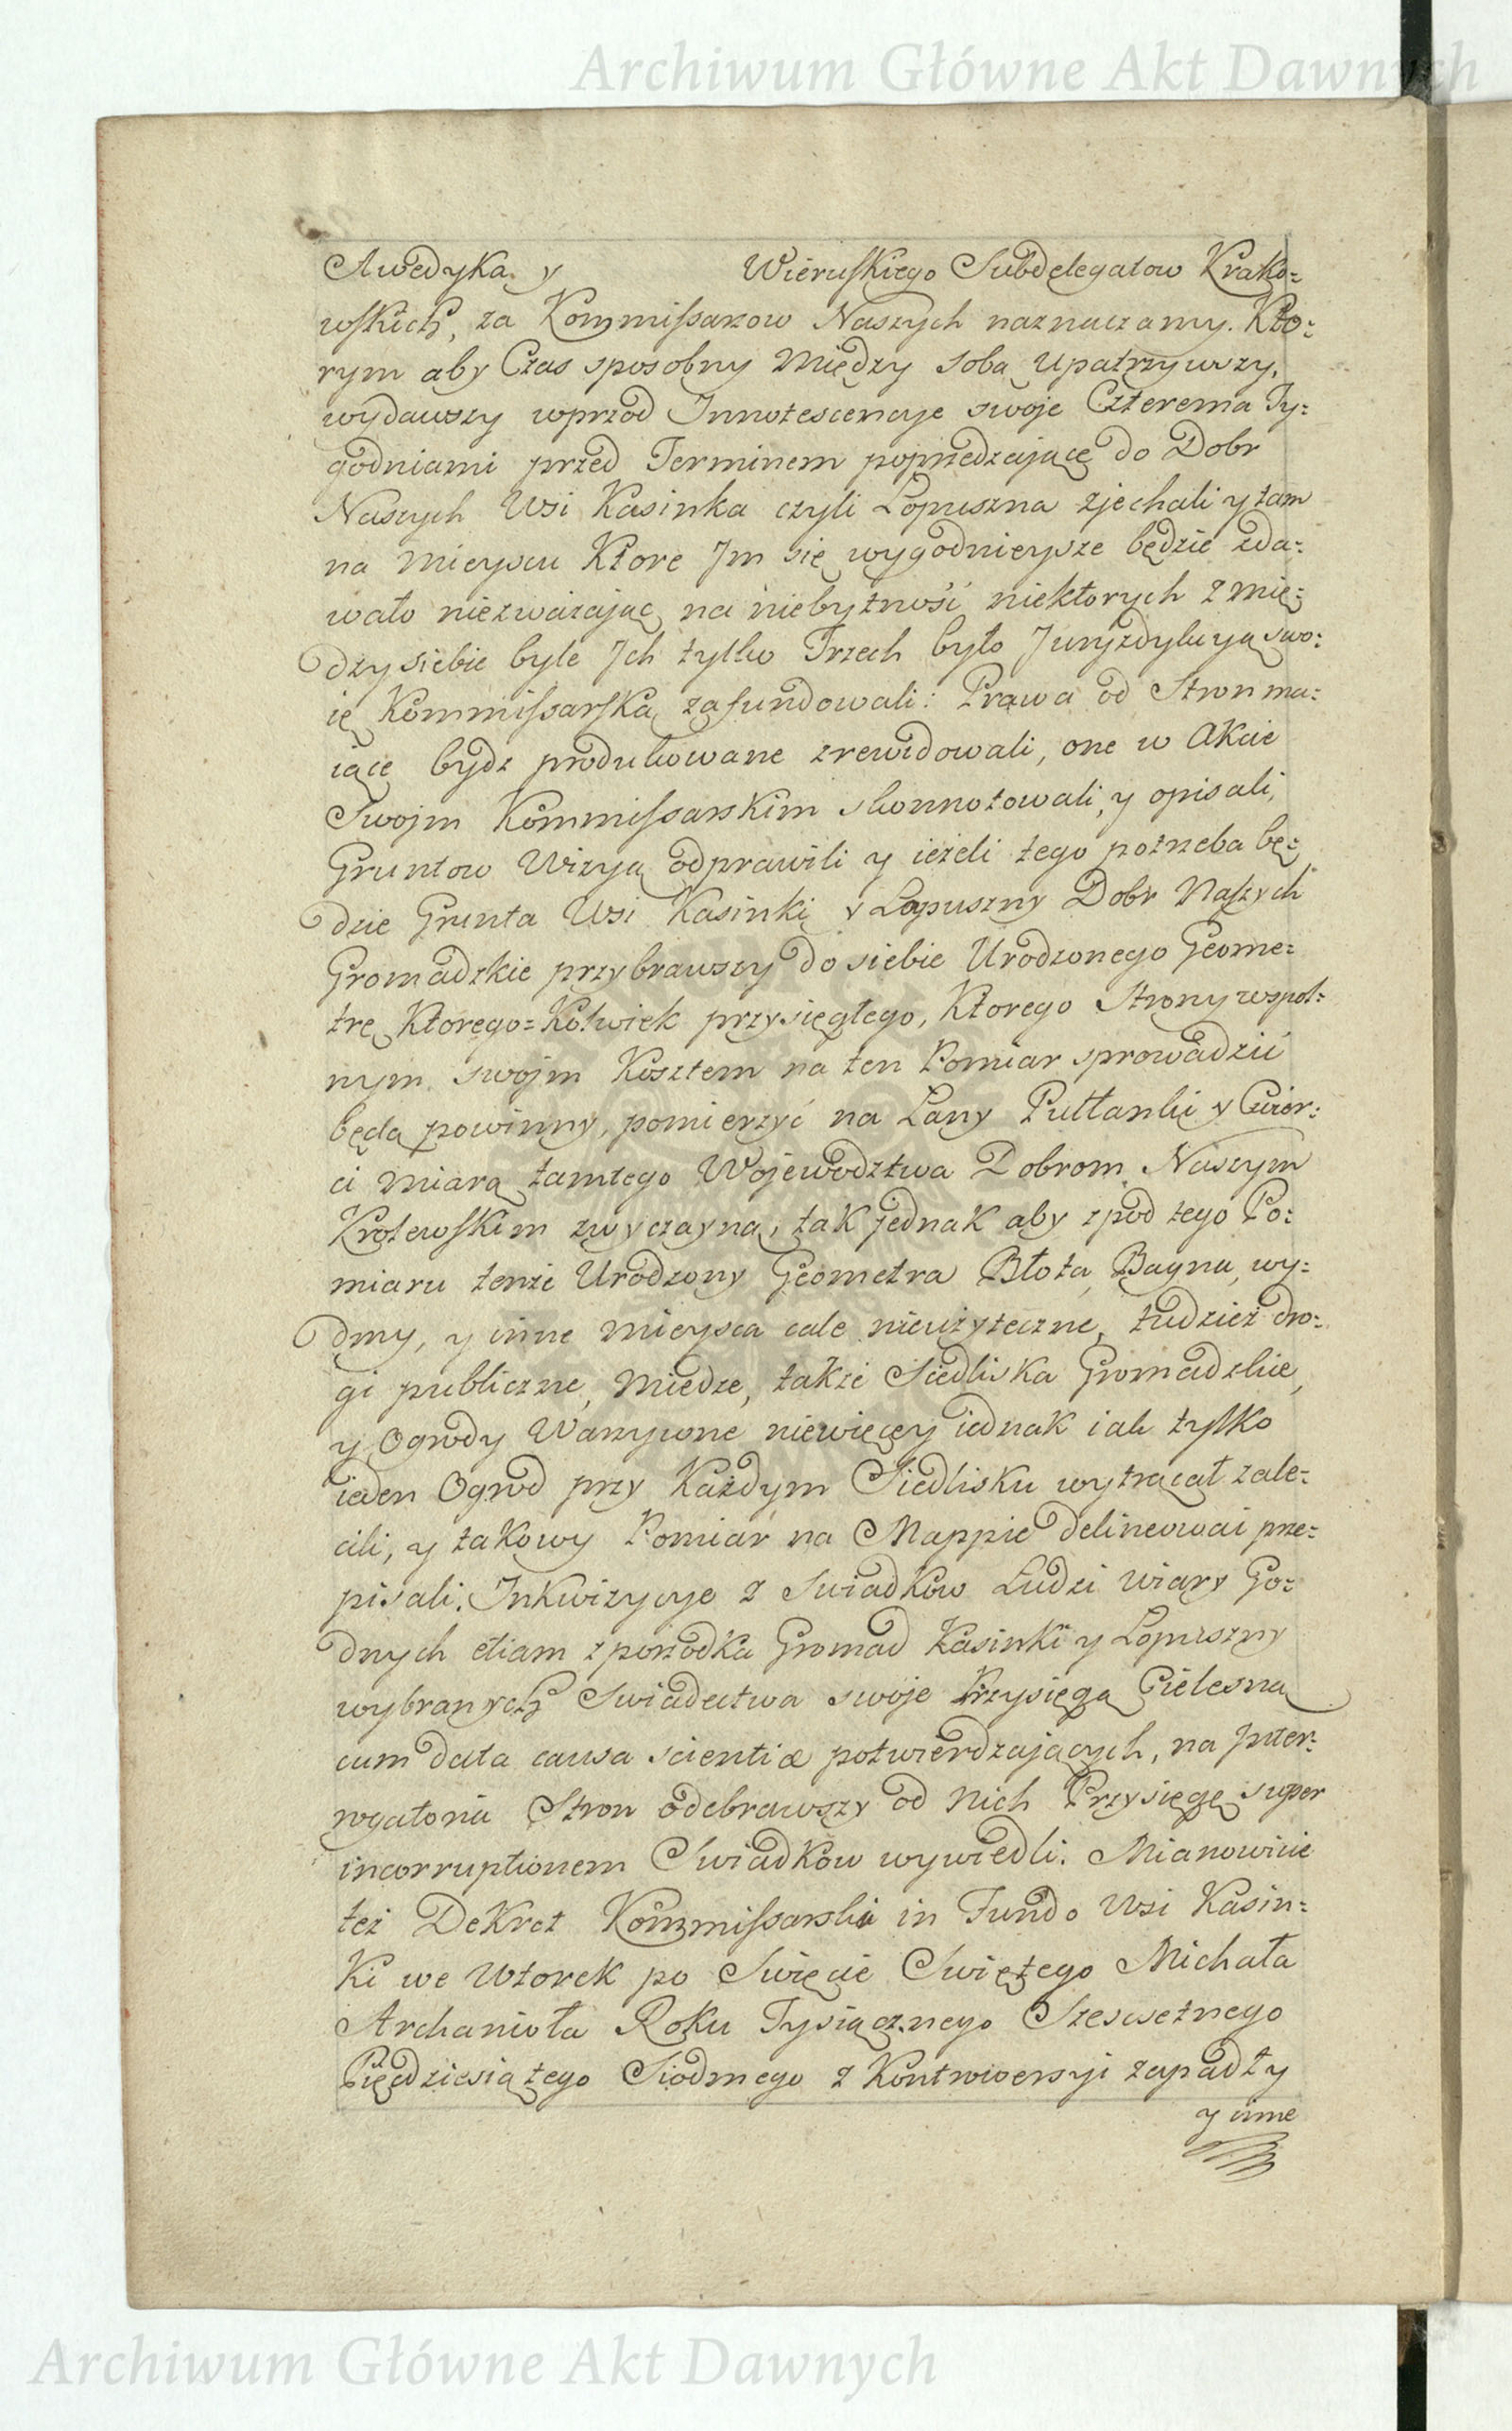 Archiwum Główne Akt Dawnych
Awedyka y Wieruskiego Subdelegatow Krako=
wskich, za Kommissarzow Naszych naznaczamy. Kto=
rym aby Czas sposobny Między sobą upatrzywszy,
wydawszy wprzod Innotescencye swoje Czterema Ty=
godniami przed Terminem poprzedzaiące do Dobr
Naszych Wsi Kasinka czyli Łopuszna zjechali y tam
na Mieyscu Ktore Jm się wygodnieysze będzie zda=
wało niezważając na niebytność niektorych z Mię=
dzy siebie byle Jch tylko Trzech było Juryzdykcyą swo=
ię Kommissarską zafundowali: Prawa od Stron ma=
iące bydz produkowane zrewidowali, one w Akcie
Swojm Kommissarskim skonnotowali, y opisali,
Gruntow Wizyą odprawili y ieżeli tego potrzeba bę=
dzie Grunta Wsi Kasinki y Łopuszny Dobr Naszych
Gromadzkie przybrawszy do siebie Urodzonego Geome=
trę Ktorego=Kolwiek przysięgłego, Ktorego Strony wspol=
nym swojm Kosztem na ten Pomiar sprowadzić
będą powinny, pomierzyć na Łany Pułłanki y Cwier=
ci Miarą tamtego Wojewodztwa Dobrom Naszym
Krolewskim zwyczayną, tak jednak aby zpod tego Po=
miaru tenże Urodzony Geometra Błota, Bagna, wy=
dmy, y inne Mieysca cale nieużyteczne, tudzież dro=
gi publiczne, Miedze, także Siedliska Gromadzkie,
y Ogrody Warzywne niewięcey iednak iak tylko
ieden Ogrod przy Każdym Siedlisku wytrącał zale=
cili, y takowy Pomiar na Mappie delineowai prze=
pisali. Inkwizycye z Swiadkow Ludzi wiary Go=
dnych etiam z posrodka Gromad Kasinki y Łopuszny
wybranych Swiadectwa swoje Przysięgą Cielesną
cum data causa scientiæ potwierdzających, na Jnter=
rogatoria Stron odebrawszy od Nich Przysięgę super
incorruptionem Swiadkow wywiedli. Mianowicie
też Dekret Kommissarski in Fundo Wsi Kasin=
Ki we Wtorek po Swięcie Swiętego Michała
Archanioła Roku Tysiącznego Szescsetnego
Pięćdziesiątego Siodmego z Kontrowersyi zapadły
y inne
Archiwum Główne Akt Dawnych